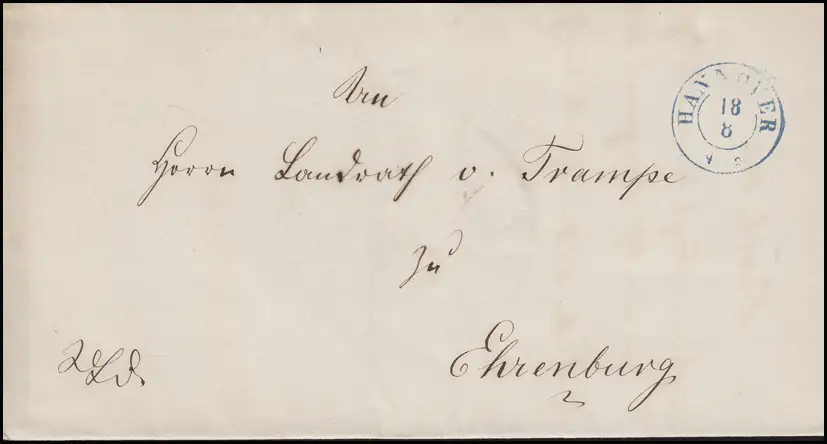 An
HANNOVER
18
8
Herrn Landrath v. Trampe
zu
Ehrenburg